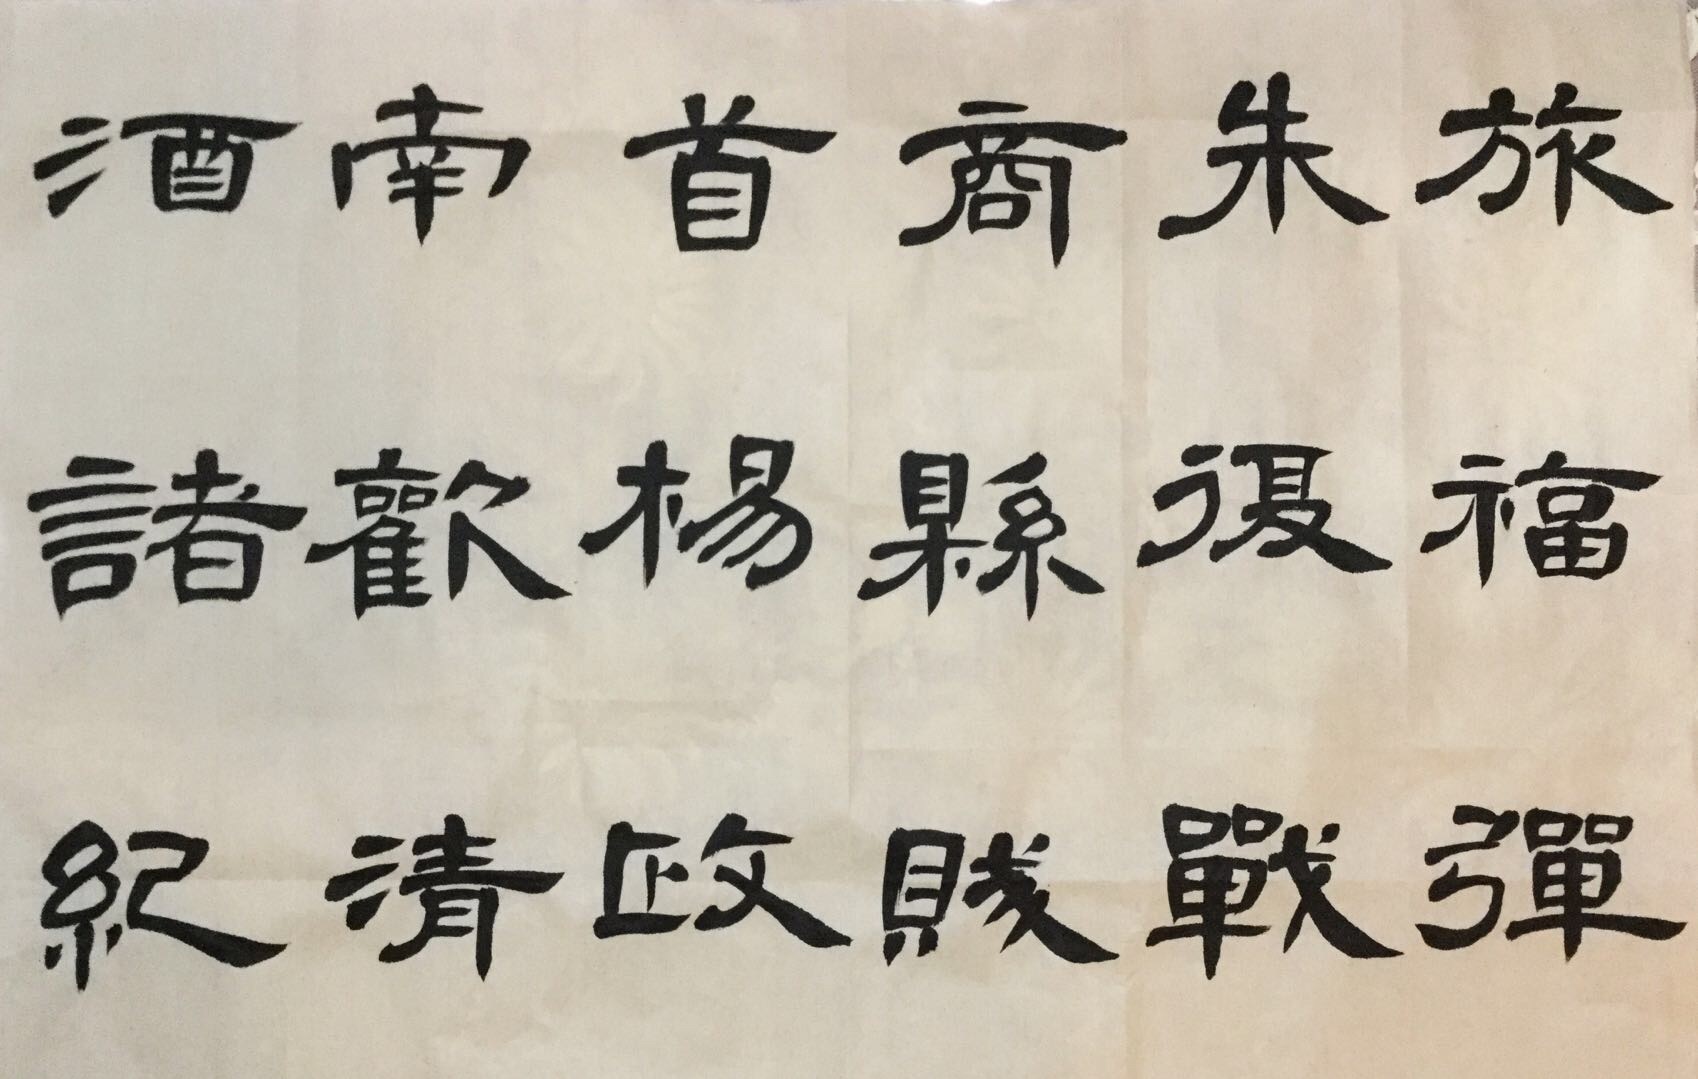 旅福彈
朱復戰
商縣賤
首楊政
南歡清
酒諸紀